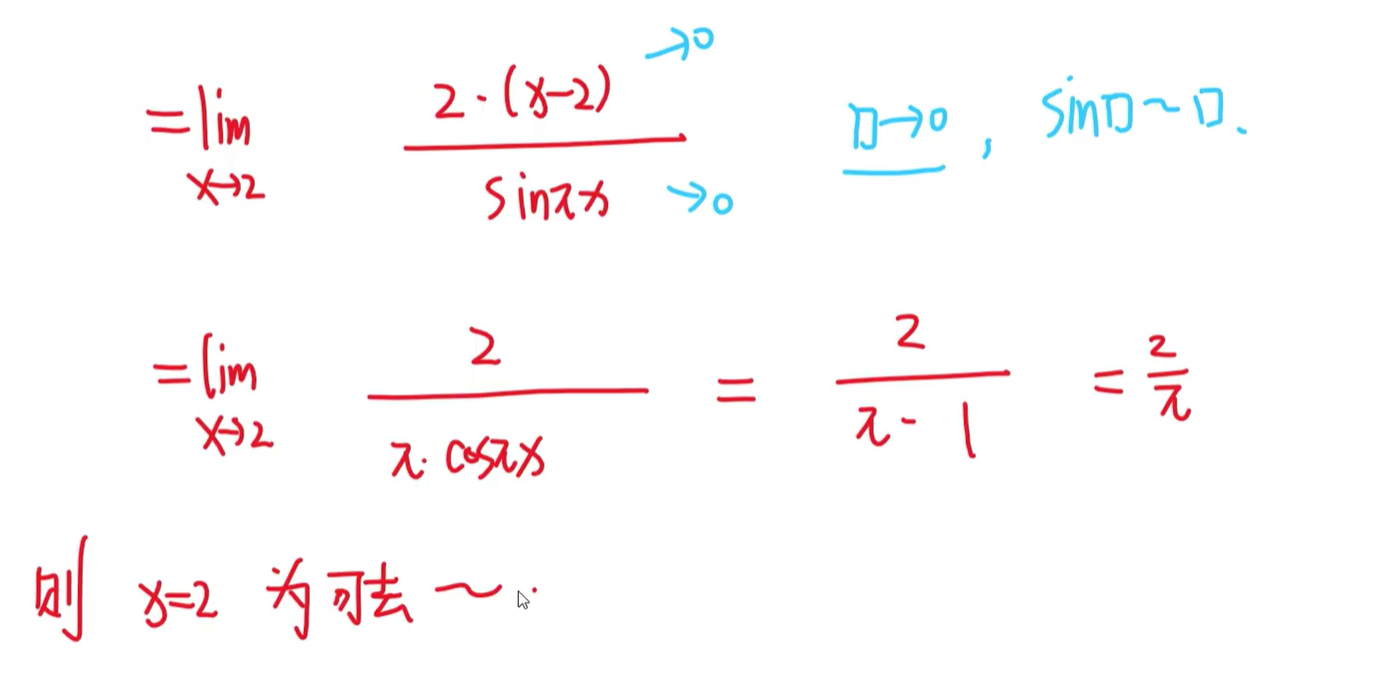 =lim x→2 2·(x-2) →0 / sinπx →0 □→0, sin□~□.
=lim x→2 2 / π·cosπx = 2 / π-1 = 2/π
则 x=2 为可去~.